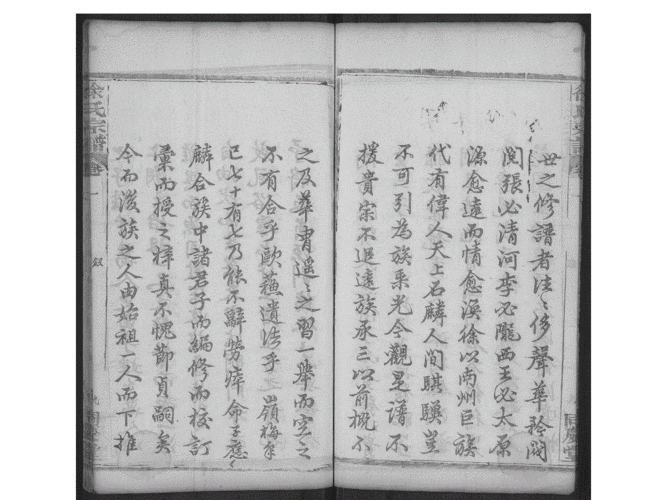 世之修譜者往々侈聲華矜閥
閱張必清河李必隴西王必太原
源愈遠而情愈渙徐以南州巨族
代有偉人天上石麟人間騏驥豈
不可引為族乘光今觀是譜不
援貴宗不遐遠族承三以前概不
之及華胄遥々之習一舉而空之
不有合乎歐蘇遺法乎嶺梅年
已七十有七乃能不辭勞瘁命王應々
麟合族中諸君子而編修而校訂
彙而授之梓真不愧節貞嗣矣
今而後族之人由始祖一人而下推
徐氏宗譜
卷一
叙